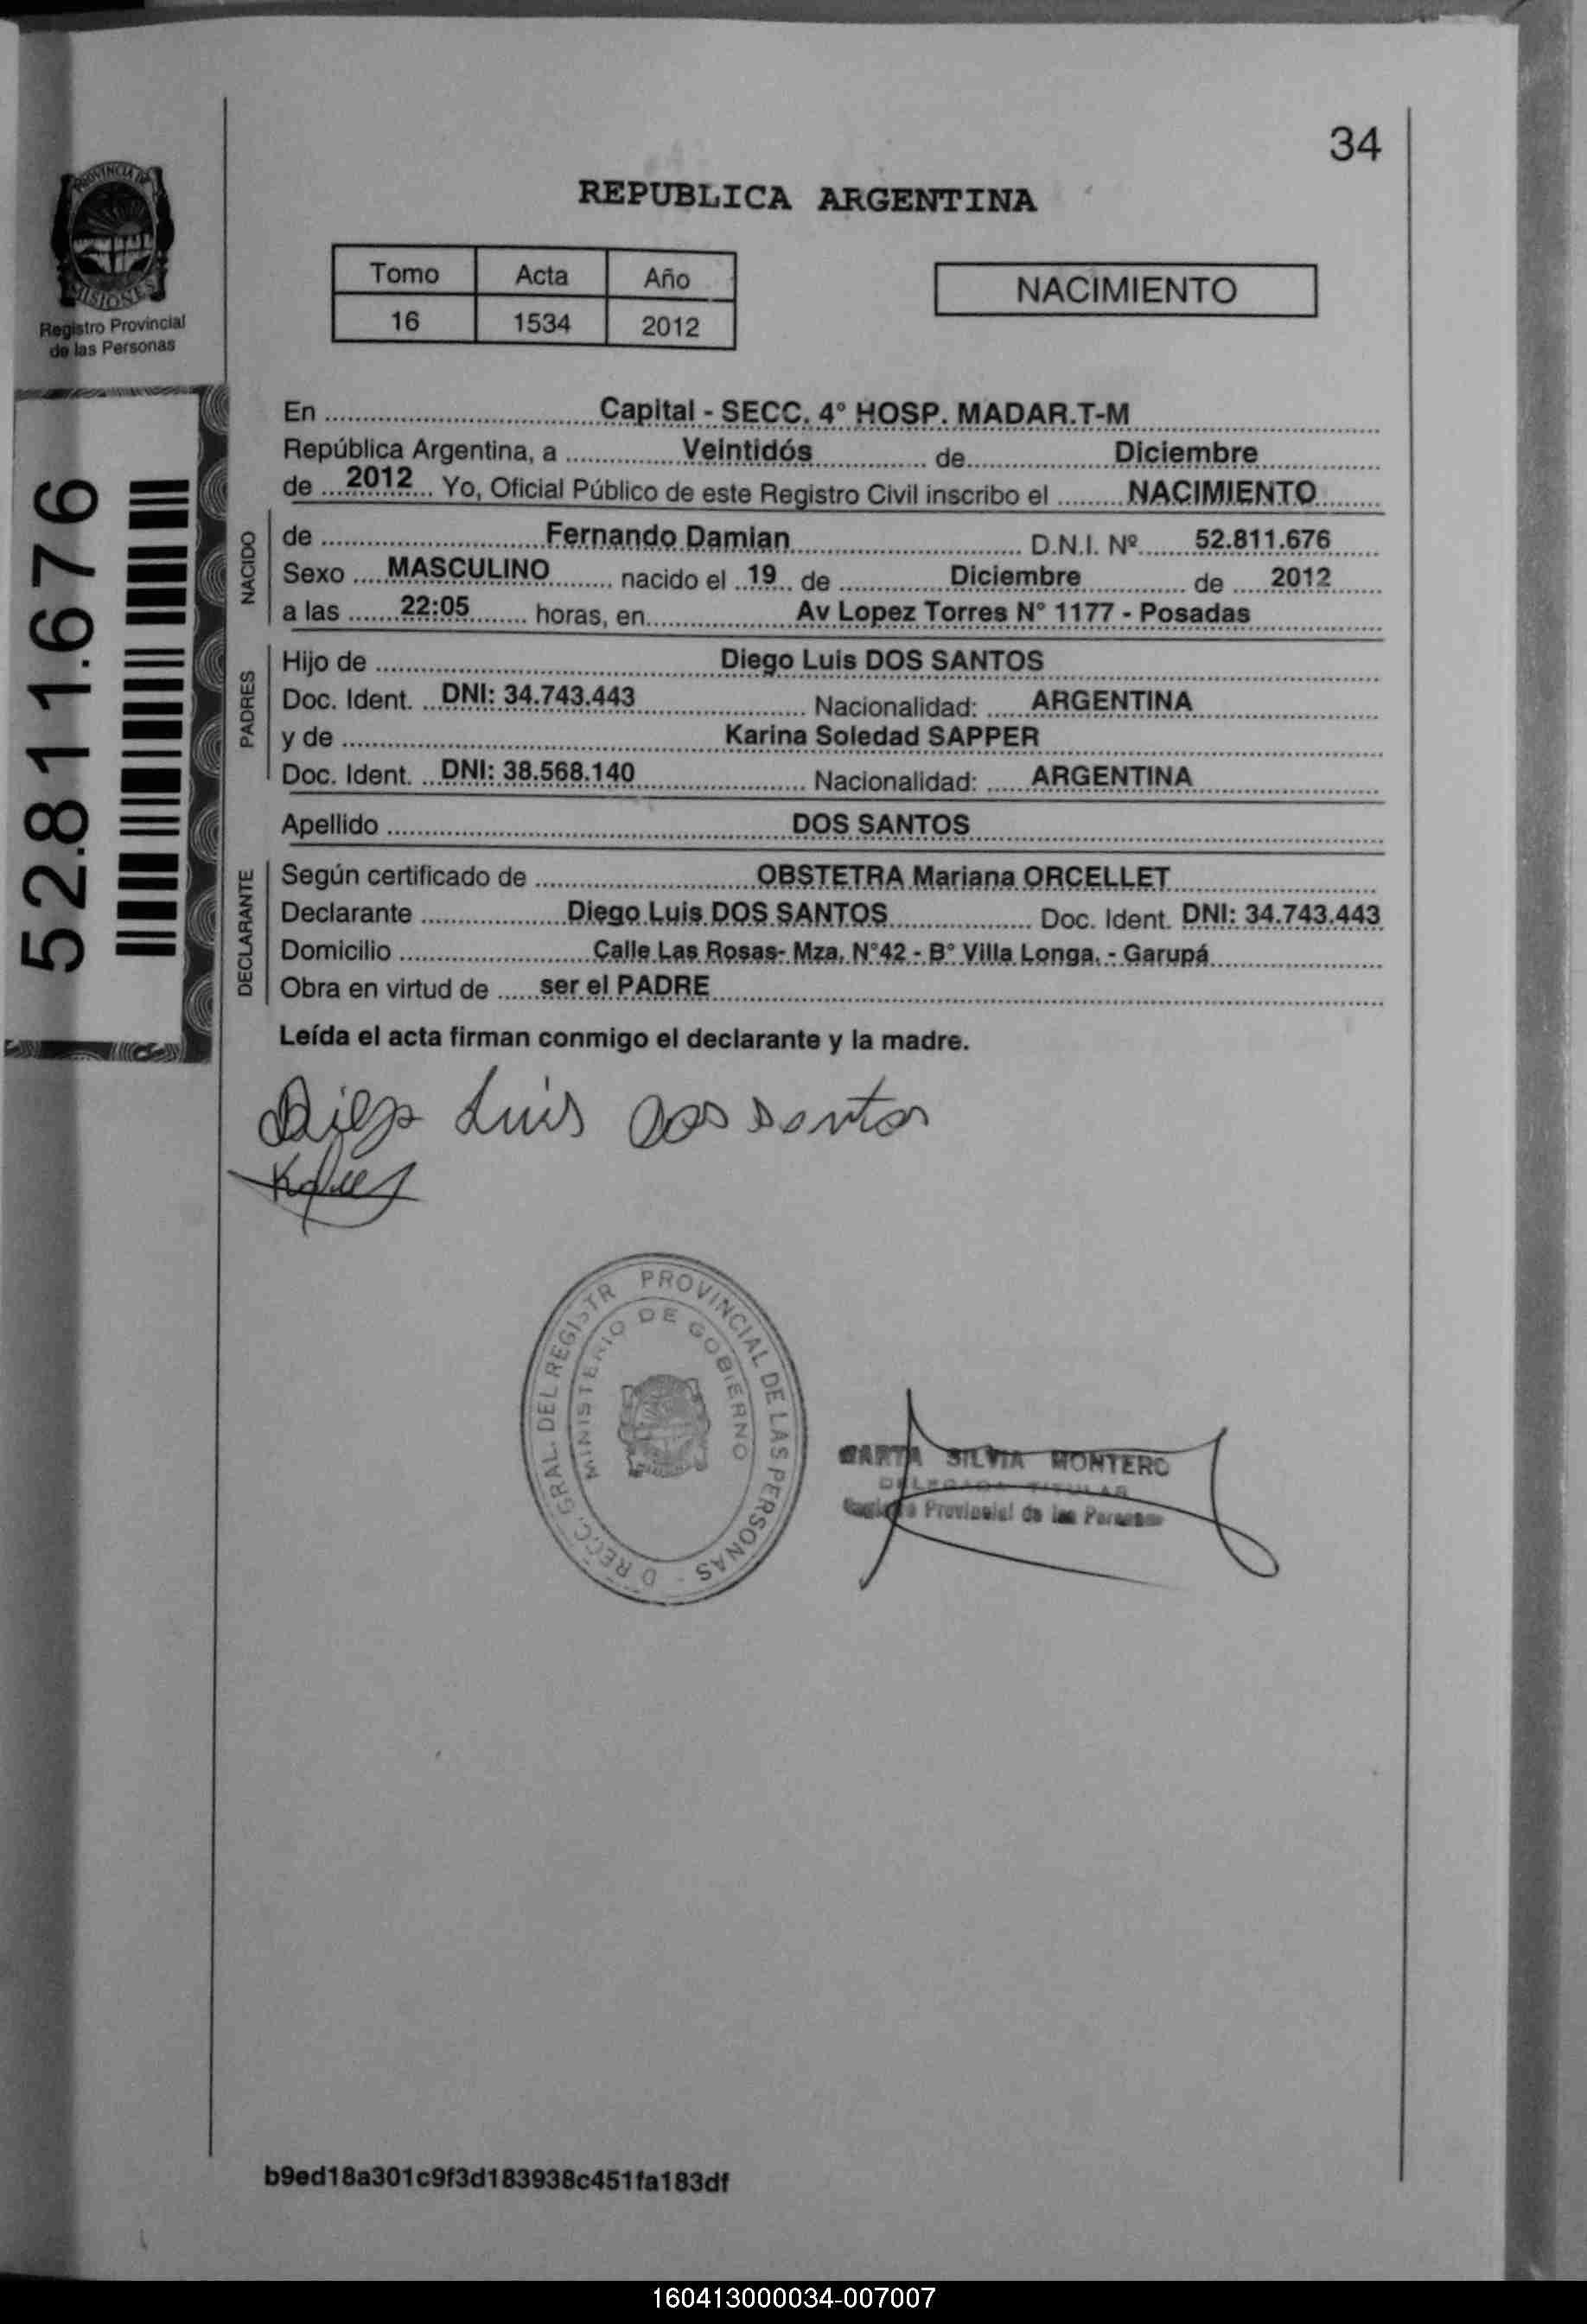 34
PROVINCIA DE
MISIONES
Registro Provincial
de las Personas
REPUBLICA ARGENTINA
Tomo Acta Año
16 1534 2012
NACIMIENTO
52.811.676
En Capital - SECC. 4° HOSP. MADAR.T-M
República Argentina, a Veintidós de Diciembre
de 2012 Yo, Oficial Público de este Registro Civil inscribo el NACIMIENTO
NACIDO
de Fernando Damian D.N.I. Nº 52.811.676
Sexo MASCULINO nacido el 19 de Diciembre de 2012
a las 22:05 horas, en Av Lopez Torres N° 1177 - Posadas
PADRES
Hijo de Diego Luis DOS SANTOS
Doc. Ident. DNI: 34.743.443 Nacionalidad: ARGENTINA
y de Karina Soledad SAPPER
Doc. Ident. DNI: 38.568.140 Nacionalidad: ARGENTINA
Apellido DOS SANTOS
DECLARANTE
Según certificado de OBSTETRA Mariana ORCELLET
Declarante Diego Luis DOS SANTOS Doc. Ident. DNI: 34.743.443
Domicilio Calle Las Rosas- Mza. N°42 - B° Villa Longa. - Garupá
Obra en virtud de ser el PADRE
Leída el acta firman conmigo el declarante y la madre.
Diego Luis Dos Santos
D RECC. GRAL. DEL REGISTR PROVINCIAL DE LAS PERSONAS -
MINISTERIO DE GOBIERNO
MARTA SILVIA MONTERO
DELEGADA TITULAR
Registro Provincial de las Personas
b9ed18a301c9f3d183938c451fa183df
160413000034-007007